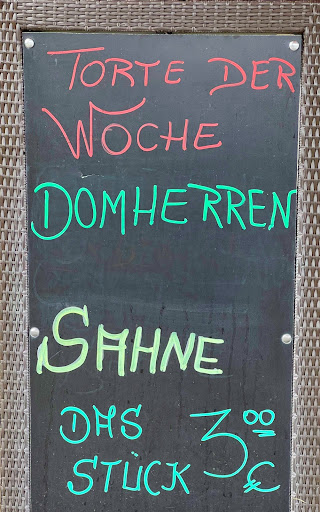 TORTE DER
WOCHE
DOMHERREN
SAHNE
DAS 3.00
STÜCK €